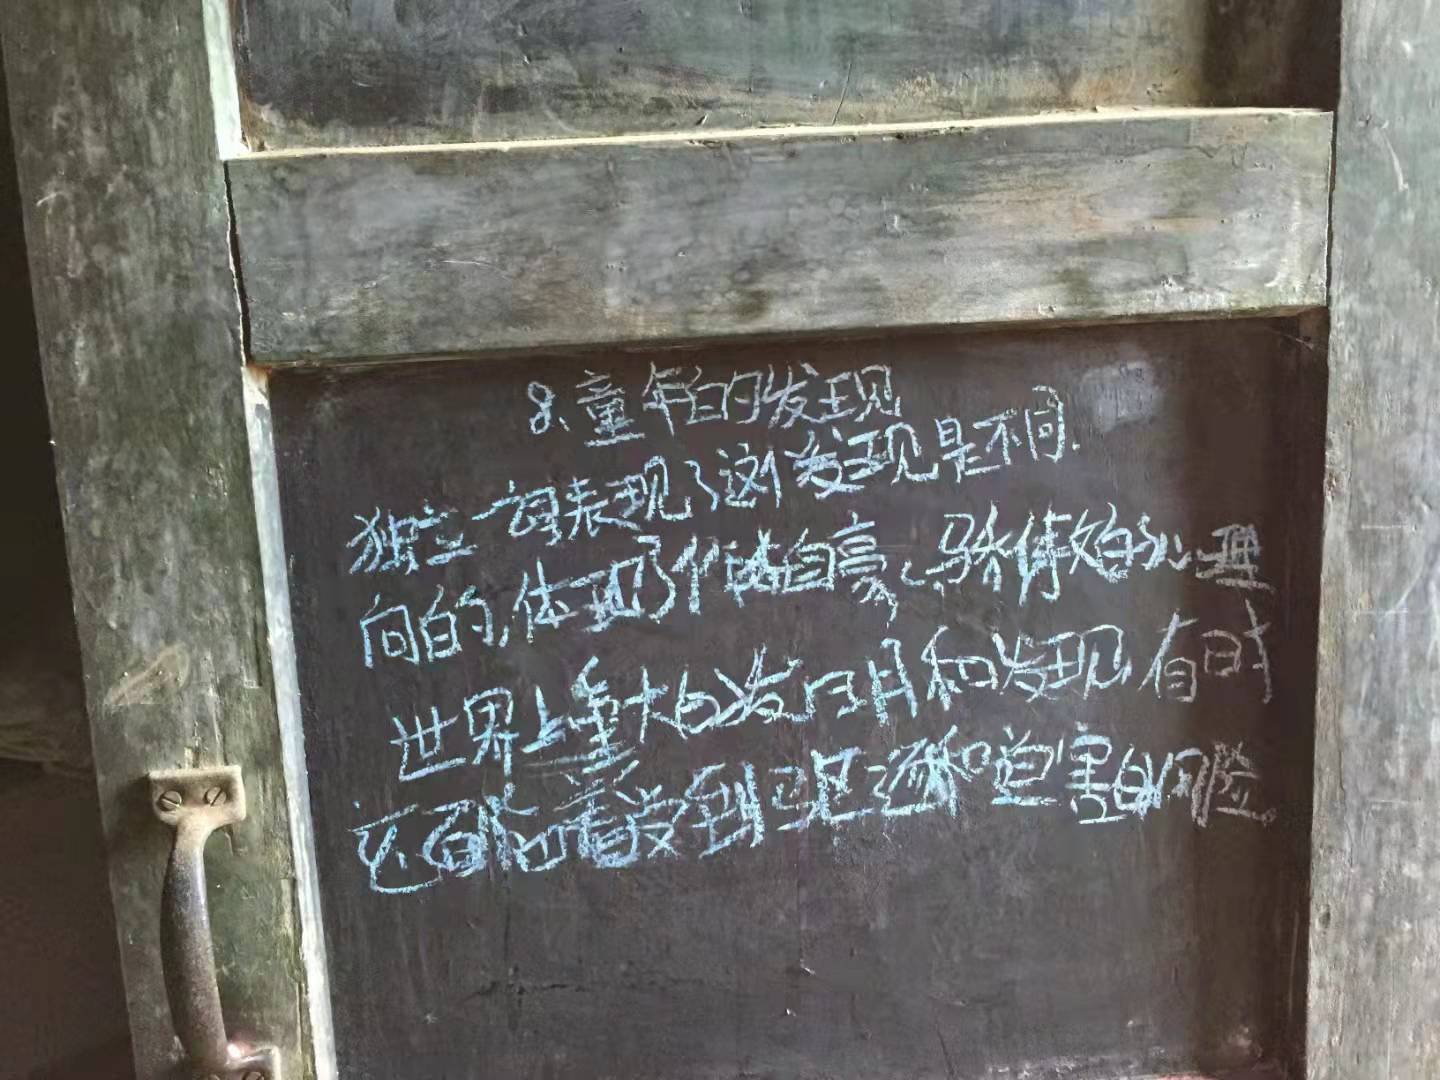 8、童年的发现
独立一句表现了这个发现是不同
向的,体现了作者自豪、骄傲的心理
世界上重大的发明和发现,有时
还面临着受到驱逐和迫害的风险